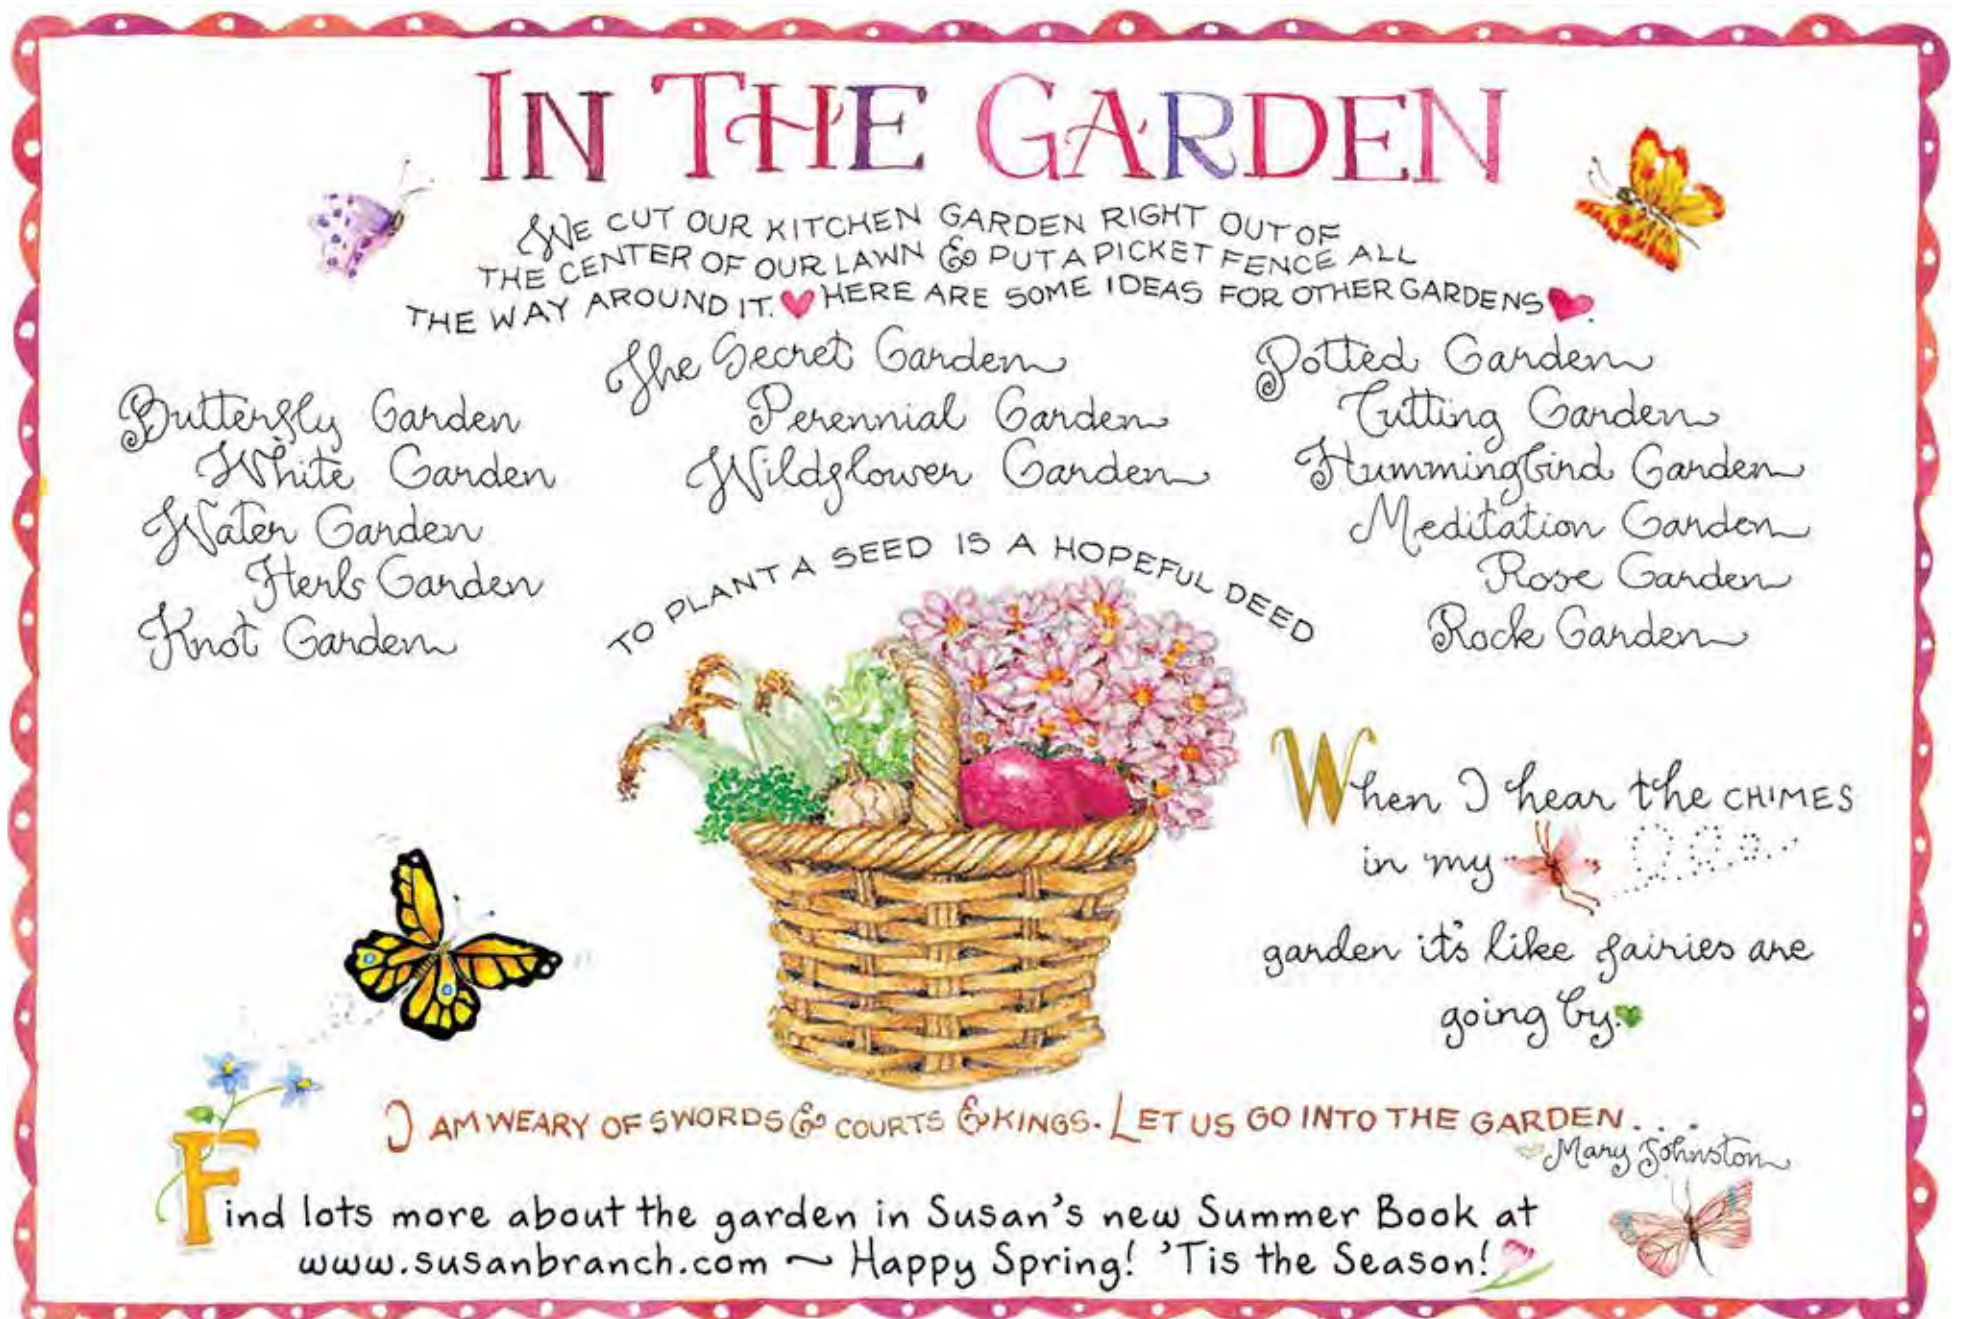 IN THE GARDEN
WE CUT OUR KITCHEN GARDEN RIGHT OUT OF
THE CENTER OF OUR LAWN & PUT A PICKET FENCE ALL
THE WAY AROUND IT. HERE ARE SOME IDEAS FOR OTHER GARDENS.
Butterfly Garden
White Garden
Water Garden
Herb Garden
Knot Garden
The Secret Garden
Perennial Garden
Wildflower Garden
Potted Garden
Cutting Garden
Hummingbird Garden
Meditation Garden
Rose Garden
Rock Garden
TO PLANT A SEED IS A HOPEFUL DEED
When I hear the CHIMES
in my
garden it's like fairies are
going by.
I AM WEARY OF SWORDS & COURTS & KINGS. LET US GO INTO THE GARDEN....
Mary Johnston
Find lots more about the garden in Susan's new Summer Book at
www.susanbranch.com ~ Happy Spring! 'Tis the Season!